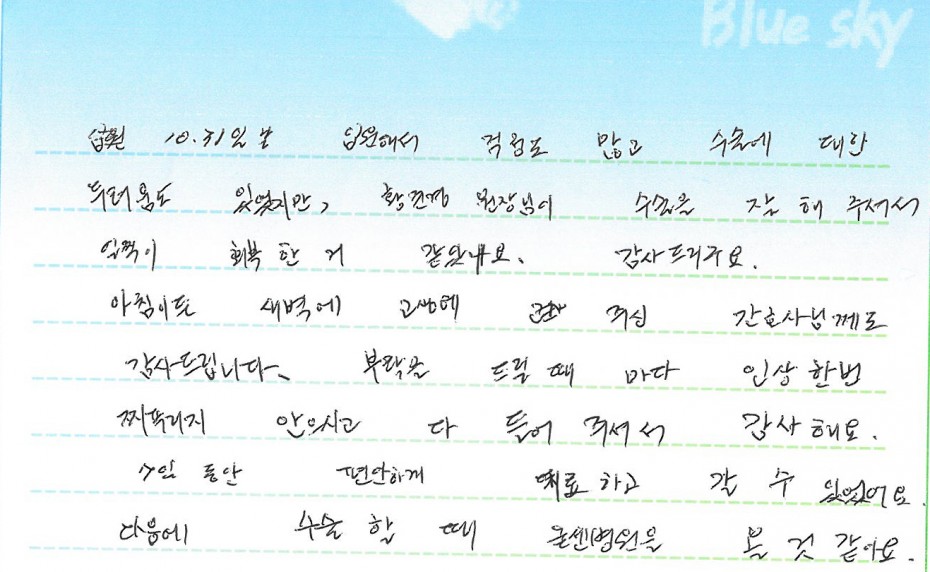 Blue sky
10.31일날 입원해서 걱정도 많고 수술에 대한
두려움도 있었지만, 원장님이 수술을 잘 해 주셔서
일찍이 회복 한 거 같았네요. 감사드리구요.
아침이든 새벽에 고생해 주신 간호사님께도
감사드립니다. 부탁을 드릴 때 마다 인상 한번
찌푸리지 안으시고 다 들어 주셔서 감사해요.
동안 편안하게 치료 하고 갈 수 있었어요.
다음에 수술 할 때 병원을 올 것 같아요.